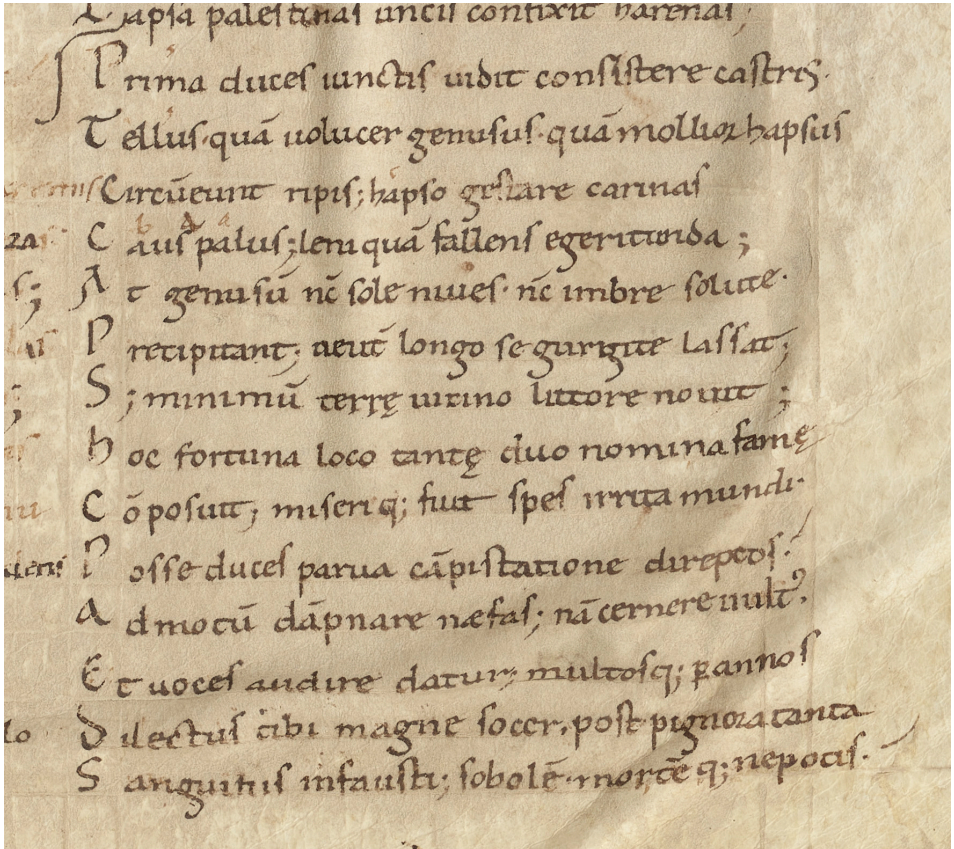 Lapsa palestinas uncis confixit harenas;
Prima duces iunctis uidit consistere castris.
Tellus·quā uolucer genusus·quā mollior hapsus
Circūeunt ripis; hapso gestare carinas
Caus palus; leni quā fallens egerit unda;
At genusū nc̄ sole niues· nc̄ imbre solute·
Precipitant; neut̄ longo se gurgite lassat;
S; minimū terrę uicino littore nouit;
hoc fortuna loco tantę duo nomina famę
Cōposuit; miseriq; fuit spes irrita mundi·
Posse duces parua cāpi statione direptos·
Admotū dāpnare næfas; nā cernere uult᾽.
Et uoces audire datur; multosq; ꝑ annos
Dilectus tibi magne socer, post pignora tanta
Sanguinis infausti; sobolē·mortēq; nepotis·